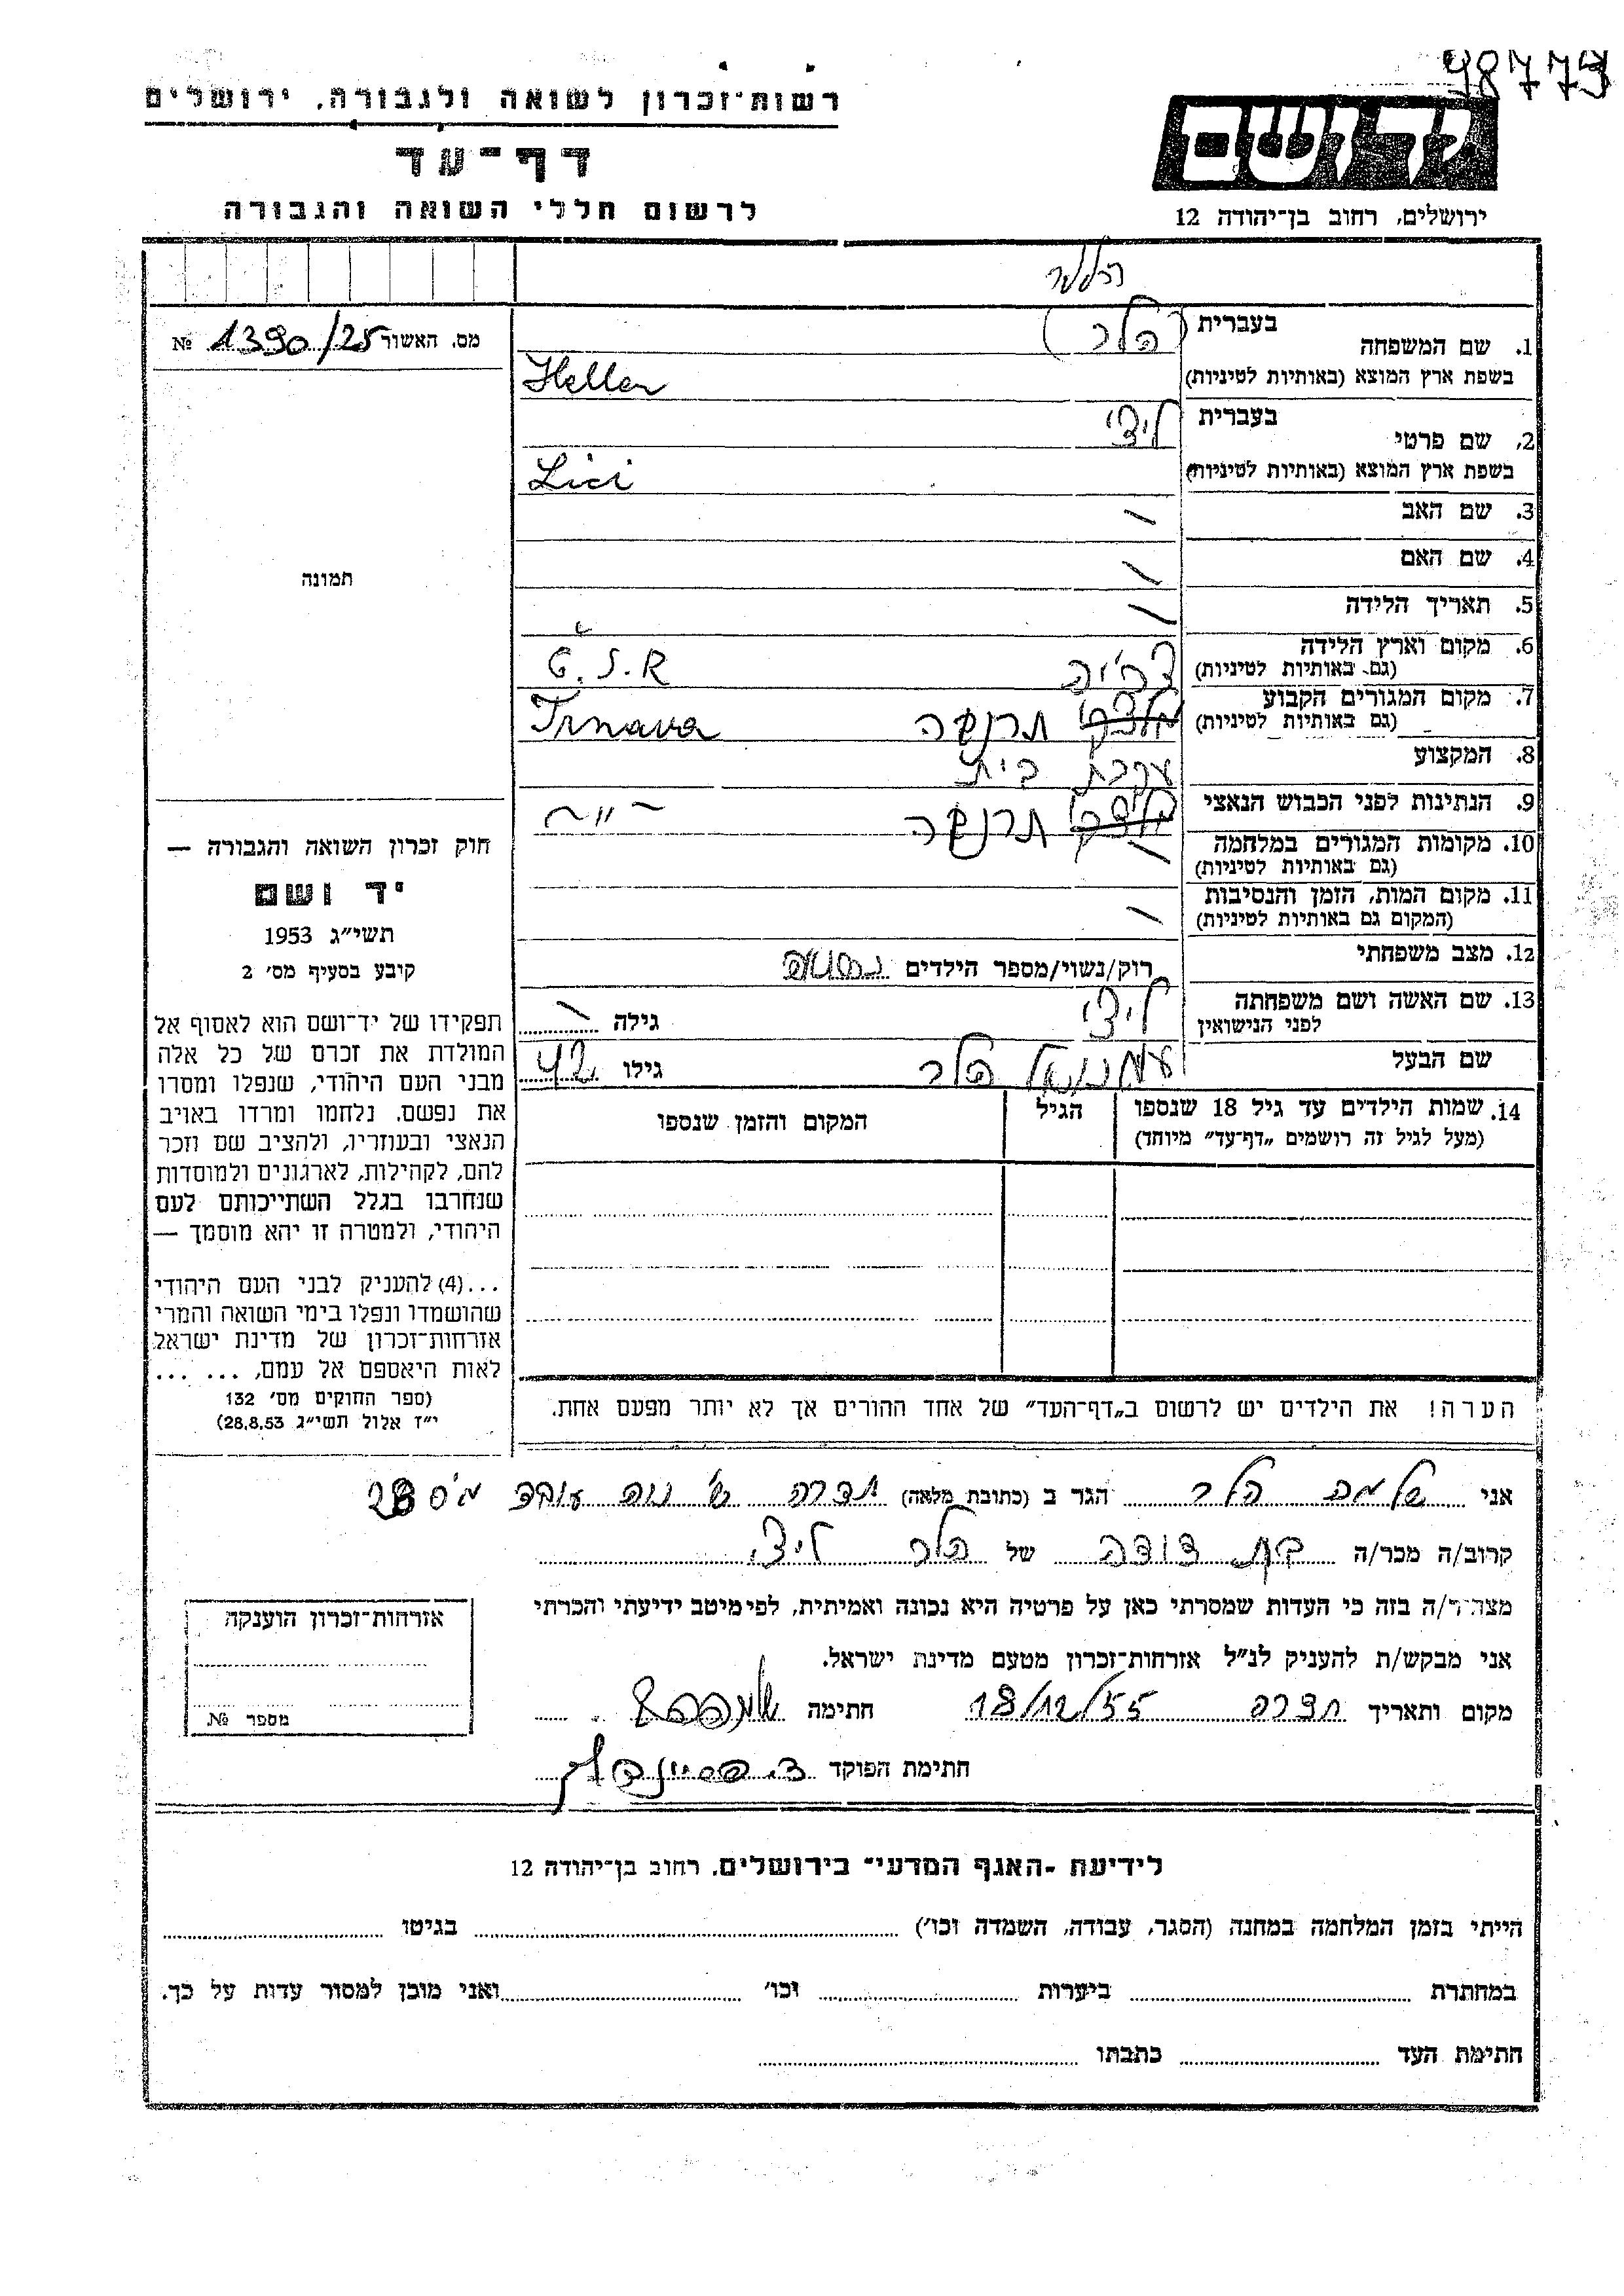 48779
רשות־זכרון לשואה ולגבורה, ירושלים
דף־עד
לרשום חללי השואה והגבורה
יד ושם
ירושלים, רחוב בן־יהודה 12
הללר
מס. האשור 1390/25 №
תמונה
1. שם המשפחה בעברית (הלר)
בשפת ארץ המוצא (באותיות לטיניות) Heller
2. שם פרטי בעברית ליצי
בשפת ארץ המוצא (באותיות לטיניות) Lici
3. שם האב \
4. שם האם \
5. תאריך הלידה \
6. מקום וארץ הלידה (גם באותיות לטיניות) צ'כיה Č.S.R
7. מקום המגורים הקבוע (גם באותיות לטיניות) תרנבה Trnava
8. המקצוע עקרת בית
9. הנתינות לפני הכבוש הנאצי תרנבה ~ " ~
10. מקומות המגורים במלחמה (גם באותיות לטיניות) \
11. מקום המות, הזמן והנסיבות (המקום גם באותיות לטיניות) \
12. מצב משפחתי רוק/נשוי/מספר הילדים נשואה
13. שם האשה ושם משפחתה לפני הנישואין ליצי גילה \
שם הבעל עמנואל הלר גילו 42
14. שמות הילדים עד גיל 18 שנספו (מעל לגיל זה רושמים „דף־עד” מיוחד) הגיל המקום והזמן שנספו
הערה! את הילדים יש לרשום ב„דף־העד” של אחד ההורים אך לא יותר מפעם אחת.
חוק זכרון השואה והגבורה —
יד ושם
תשי״ג 1953
קובע בסעיף מס׳ 2
תפקידו של יד־ושם הוא לאסוף אל
המולדת את זכרם של כל אלה
מבני העם היהודי, שנפלו ומסרו
את נפשם. נלחמו ומרדו באויב
הנאצי ובעוזריו, ולהציב שם וזכר
להם, לקהילות, לארגונים ולמוסדות
שנחרבו בגלל השתייכותם לעם
היהודי, ולמטרה זו יהא מוסמך —
...(4) להעניק לבני העם היהודי
שהושמדו ונפלו בימי השואה והמרי
אזרחות־זכרון של מדינת ישראל
לאות היאספם אל עמם, ... ...
(ספר החוקים מס׳ 132
י״ז אלול תשי״ג 28.8.53)
אני שלמה הלר הגר ב (כתובת מלאה) חדרה ש' נוה עובד מס' 28
קרוב/ה מכר/ה בת דודה של הלר ליצי
מצהיר/ה בזה כי העדות שמסרתי כאן על פרטיה היא נכונה ואמיתית, לפי מיטב ידיעתי והכרתי
אני מבקש/ת להעניק לנ״ל אזרחות־זכרון מטעם מדינת ישראל.
מקום ותאריך חדרה 18/12/55 חתימה
חתימת הפוקד
אזרחות־זכרון הוענקה
מספר №
לידיעת -האגף המדעי־ בירושלים, רחוב בן־יהודה 12
הייתי בזמן המלחמה במחנה (הסגר, עבודה, השמדה וכו׳) בגיטו
במחתרת ביערות וכו׳ ואני מוכן למסור עדות על כך.
חתימת העד כתבתו